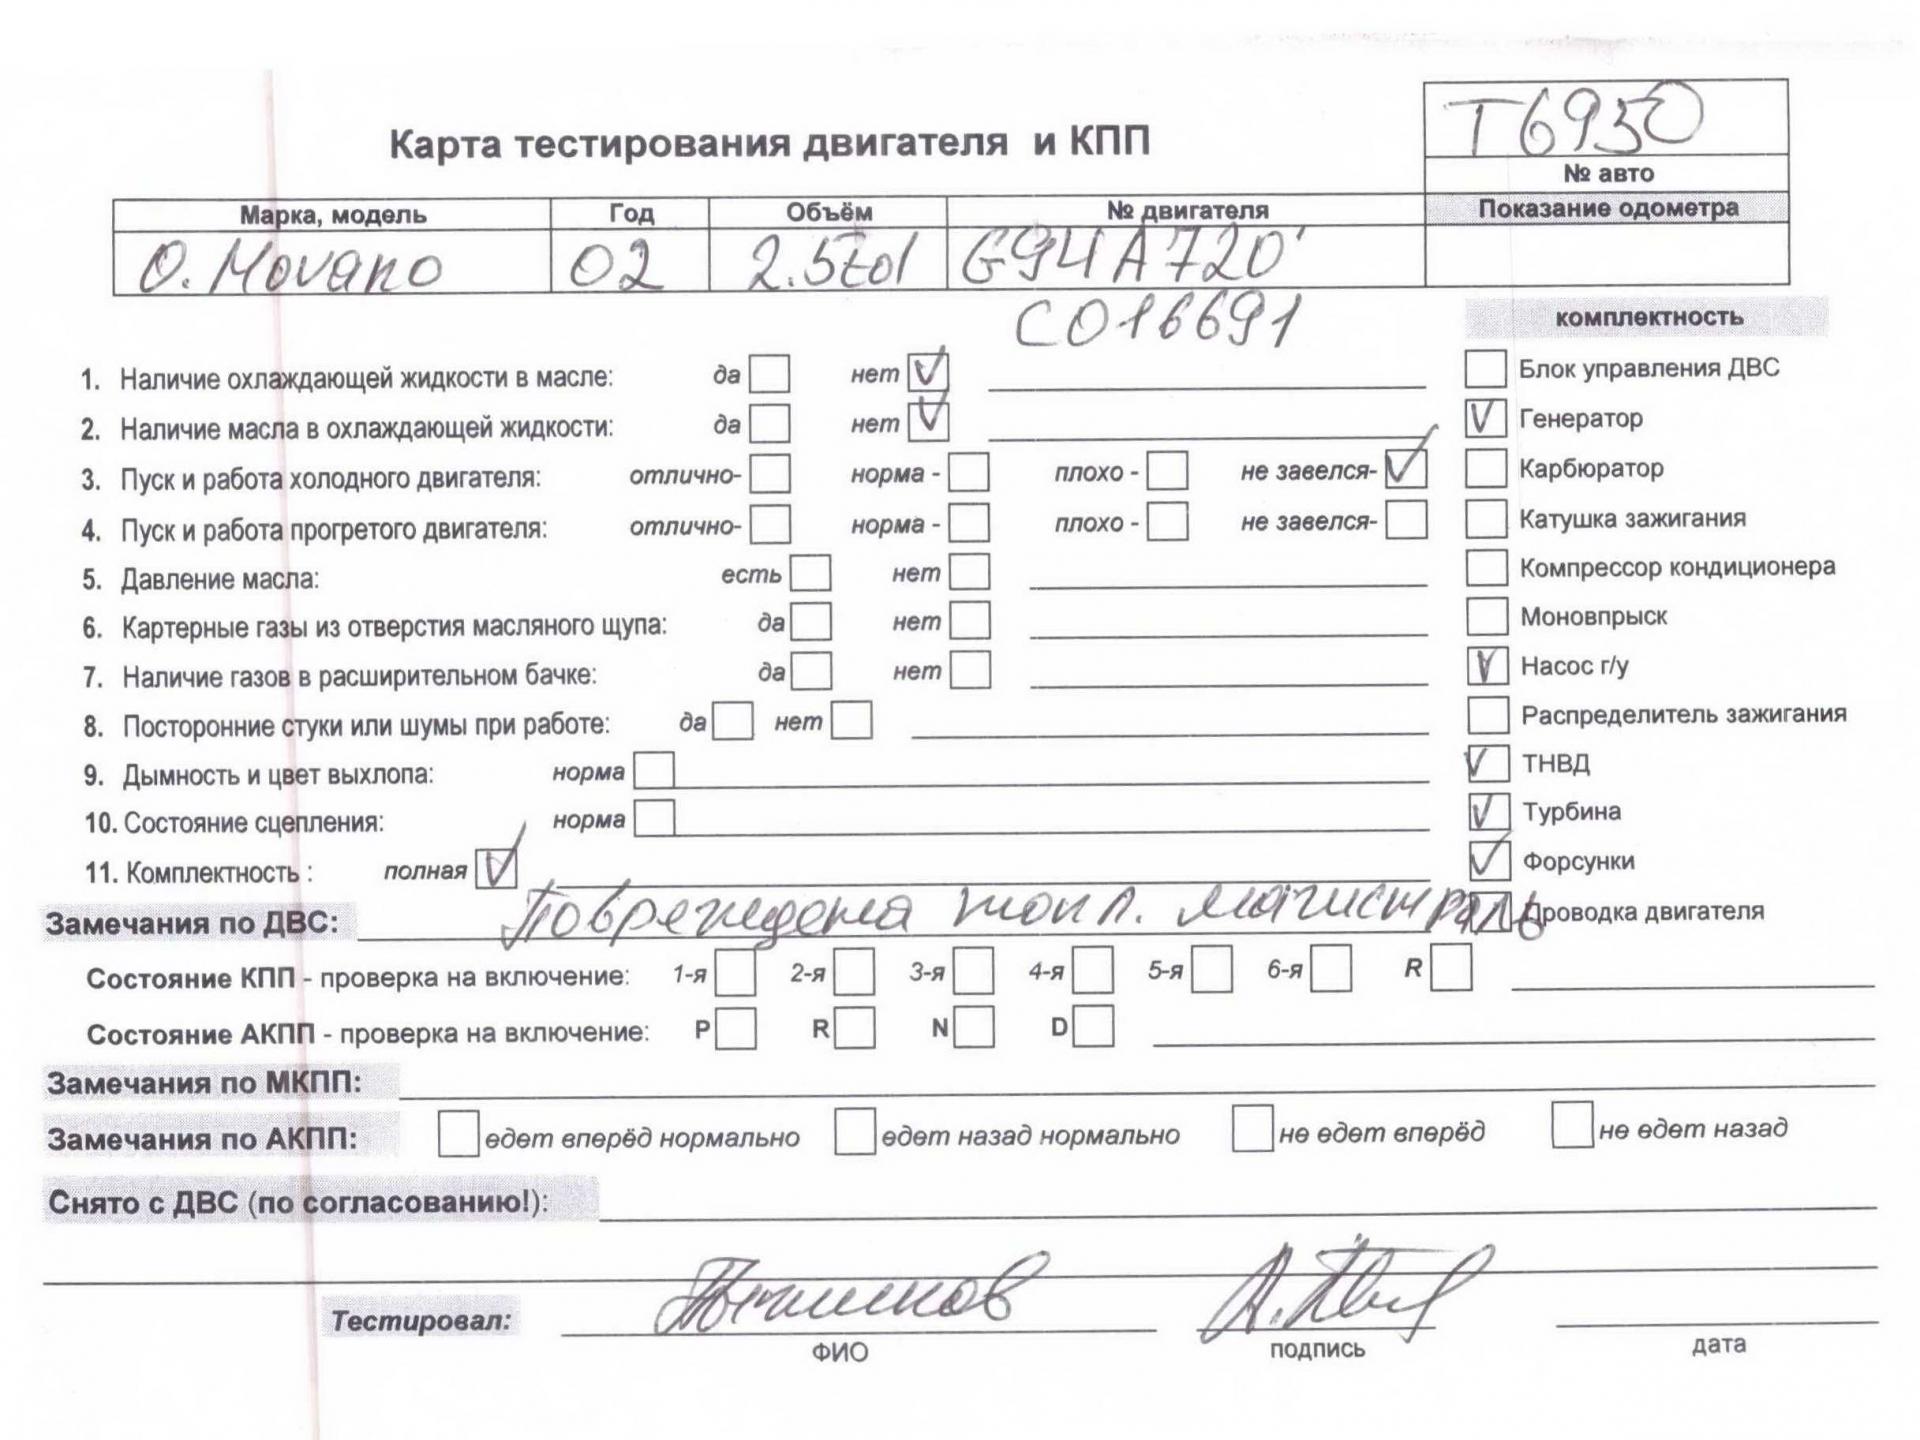 Т6950
№ авто
Карта тестирования двигателя и КПП
Марка, модель Год Объём № двигателя Показание одометра
O. Movano 02 2.5tdi G9UA720
C016691
комплектность
1. Наличие охлаждающей жидкости в масле: да нет V Блок управления ДВС
2. Наличие масла в охлаждающей жидкости: да нет V V Генератор
3. Пуск и работа холодного двигателя: отлично- норма - плохо - не завелся- V Карбюратор
4. Пуск и работа прогретого двигателя: отлично- норма - плохо - не завелся- Катушка зажигания
5. Давление масла: есть нет Компрессор кондиционера
6. Картерные газы из отверстия масляного щупа: да нет Моновпрыск
7. Наличие газов в расширительном бачке: да нет V Насос г/у
8. Посторонние стуки или шумы при работе: да нет Распределитель зажигания
9. Дымность и цвет выхлопа: норма V ТНВД
10. Состояние сцепления: норма V Турбина
11. Комплектность : полная V V Форсунки
Замечания по ДВС: Повреждена топл. магистраль Проводка двигателя
Состояние КПП - проверка на включение: 1-я 2-я 3-я 4-я 5-я 6-я R
Состояние АКПП - проверка на включение: P R N D
Замечания по МКПП:
Замечания по АКПП: едет вперёд нормально едет назад нормально не едет вперёд не едет назад
Снято с ДВС (по согласованию!):
Тестировал:
ФИО подпись дата